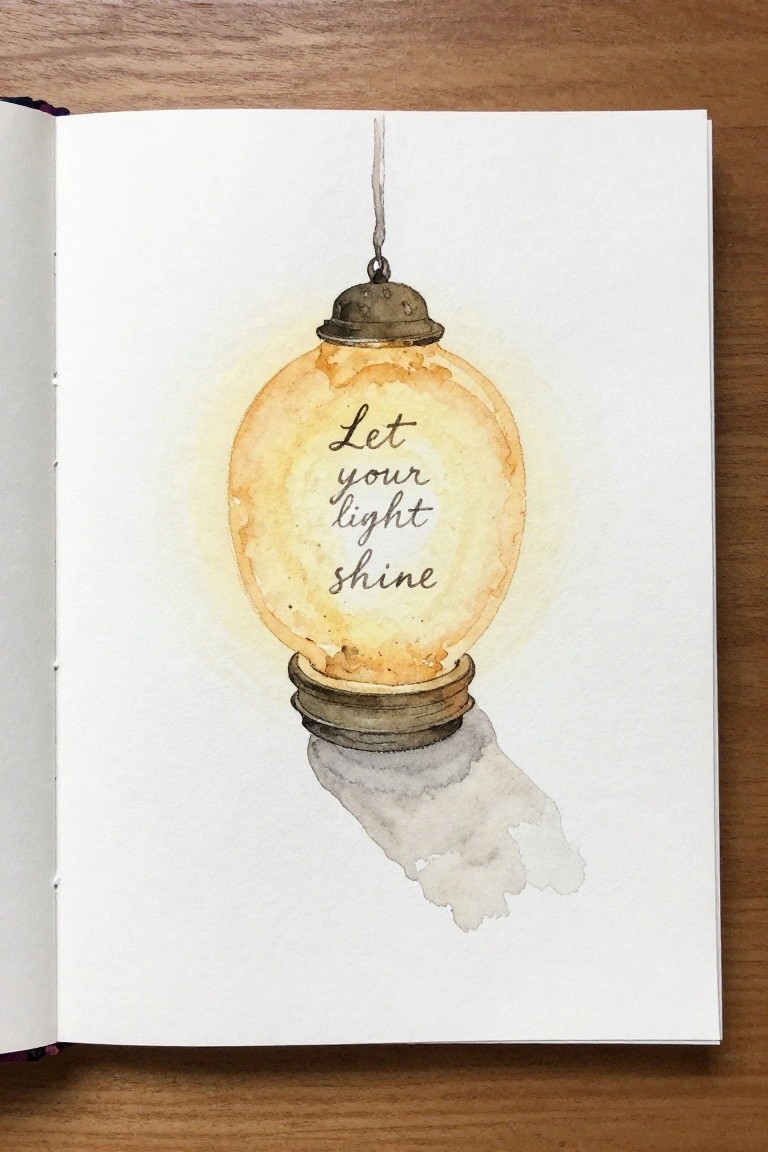 Let
your
light
shine